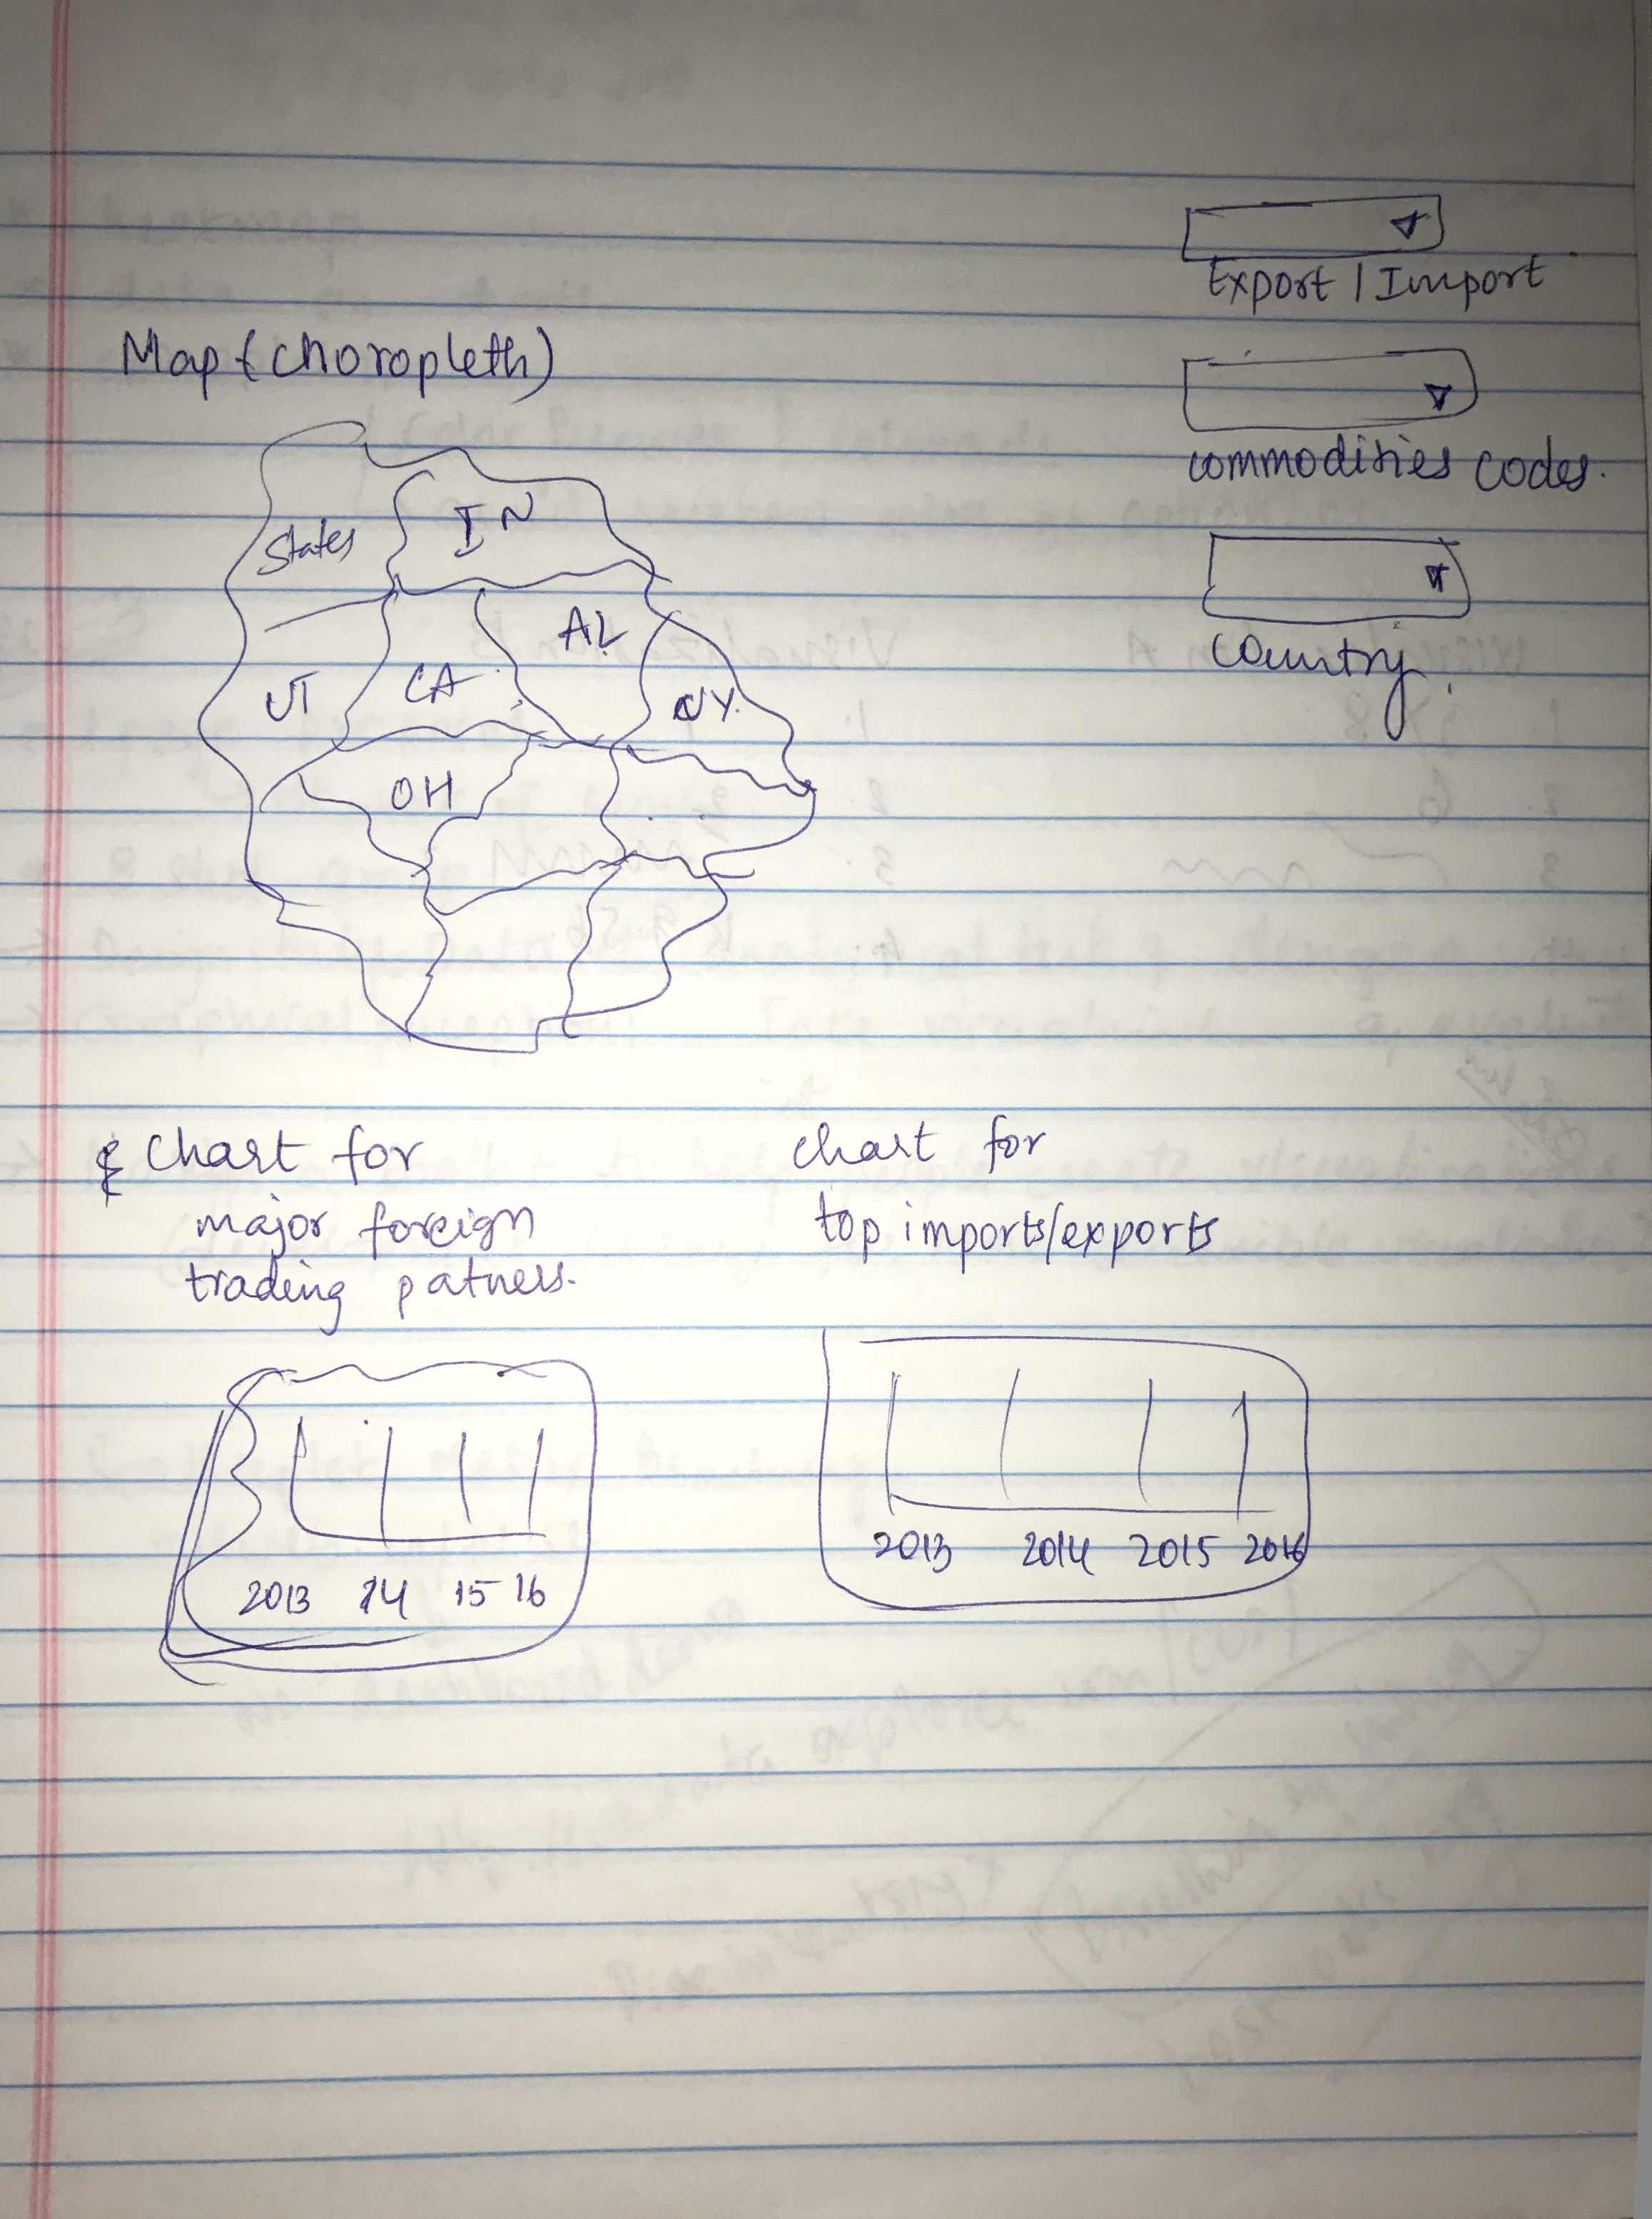 Export | Import
Map (choropleth)
commodities codes.
States
IN
country
AL
UT
CA
NY.
OH
Chart for
major foreign
trading patners.
chart for
top imports/exports
2013 14 15 16
2013 2014 2015 2016